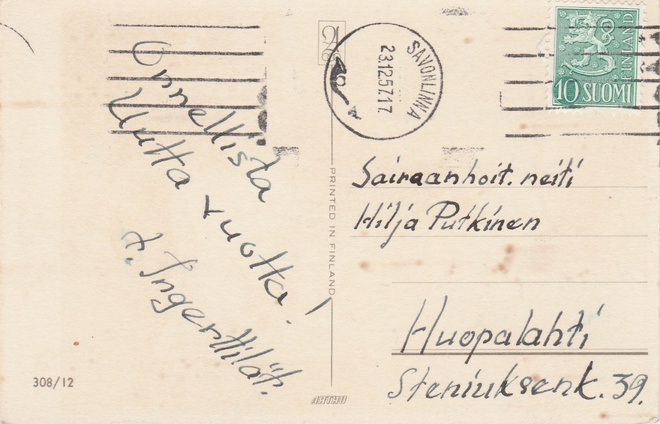 Onnellista
Uutta vuotta!
t. Ingerttilät.
308/12
PRINTED IN FINLAND
SAVONLINNA
23.12.57.17
FINLAND
10 SUOMI
Sairaanhoit. neiti
Hilja Putkinen
Huopalahti
Steniuksenk. 39.